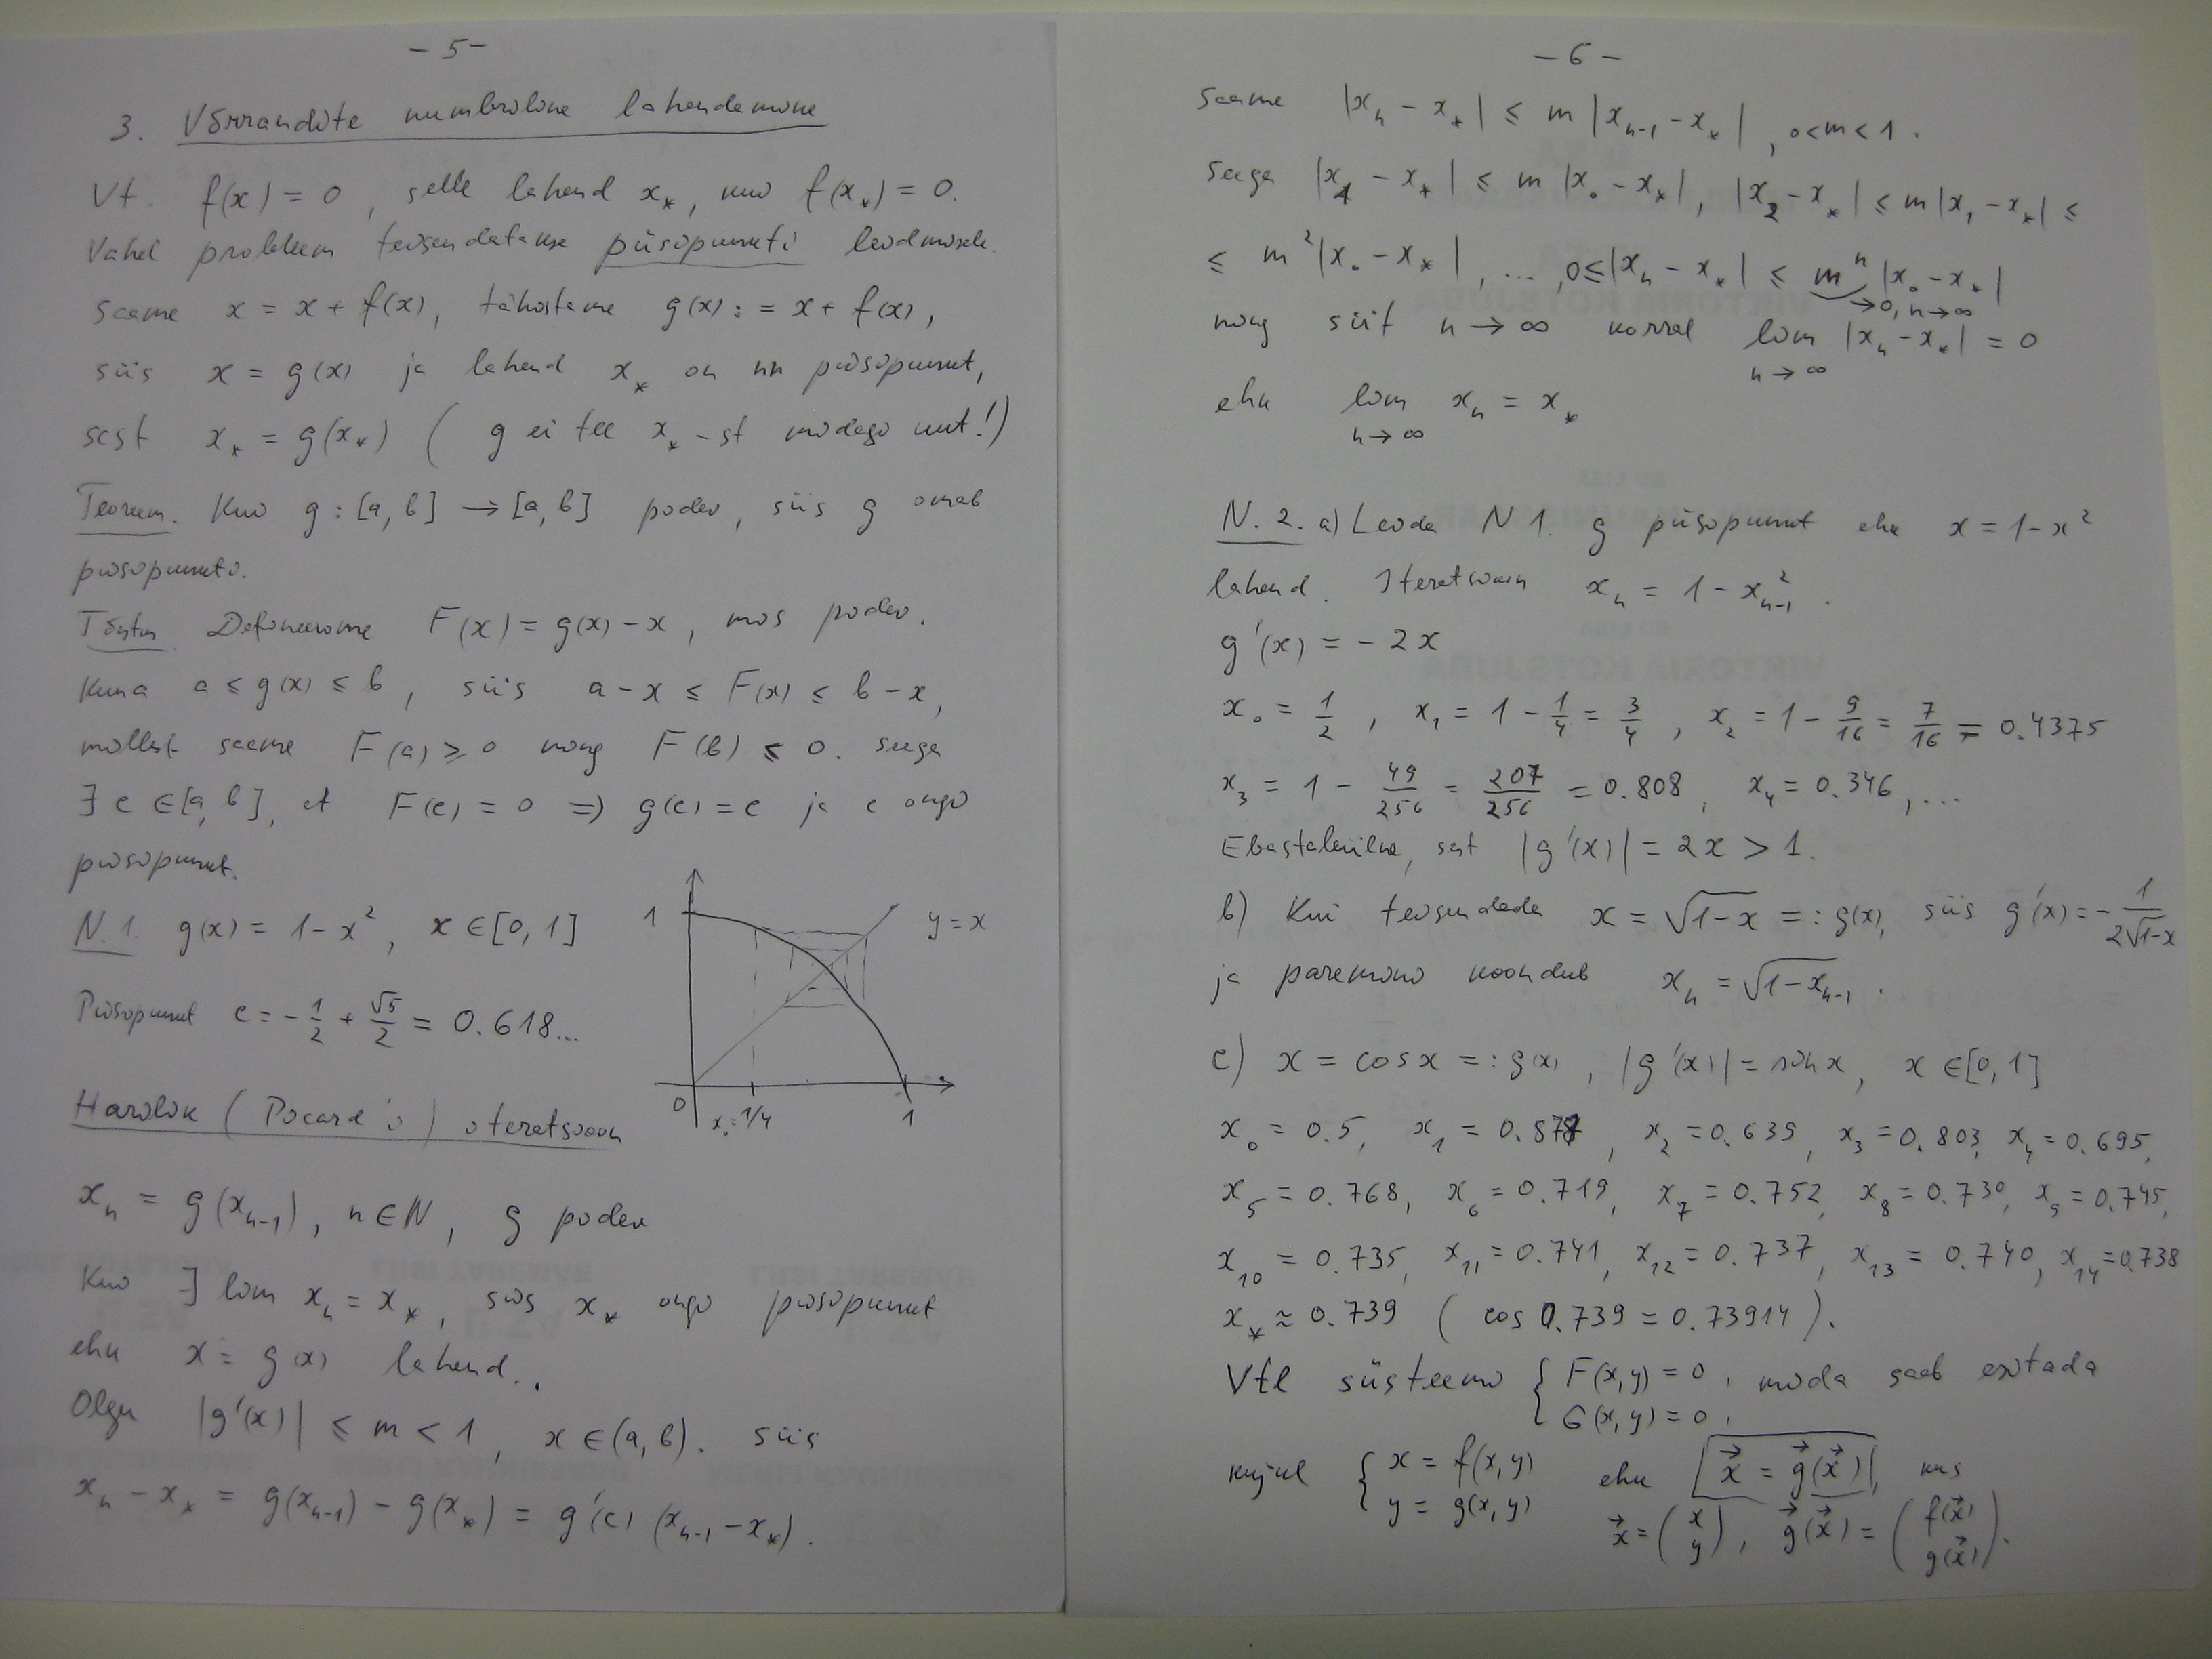 - 5 -
3. Võrrandite numbriline lahendamine
Vt. f(x) = 0, selle lahend x_*, kui f(x_*) = 0.
Vahel probleem teisendatakse püsipunkti leidmisele.
Saame x = x + f(x), tähistame g(x) := x + f(x),
siis x = g(x) ja lahend x_* on nn püsipunkt,
sest x_* = g(x_*) ( g ei tee x_*-st midagi uut! )
Teoreem. Kui g : [a, b] → [a, b] pidev, siis g omab
püsipunkti.
Tõestus Defineerime F(x) = g(x) - x, mis pidev.
Kuna a ≤ g(x) ≤ b, siis a - x ≤ F(x) ≤ b - x,
millest saame F(a) ≥ 0 ning F(b) ≤ 0. Seega
∃ c ∈ [a, b], et F(c) = 0 ⇒ g(c) = c ja c ongi
püsipunkt.
N. 1. g(x) = 1 - x², x ∈ [0, 1]
Püsipunkt c = -1/2 + √5/2 = 0.618...
1
y = x
0
x₀ = 1/4
1
Harilik ( Picard'i ) iteratsioon
x_n = g(x_{n-1}), n ∈ N, g pidev
Kui ∃ lim x_n = x_*, siis x_* ongi püsipunkt
ehk x = g(x) lahend.
Olgu |g'(x)| ≤ m < 1, x ∈ (a, b). Siis
x_n - x_* = g(x_{n-1}) - g(x_*) = g'(c) (x_{n-1} - x_*).
- 6 -
Saame |x_n - x_*| ≤ m |x_{n-1} - x_*|, 0 < m < 1.
Seega |x_1 - x_*| ≤ m |x_0 - x_*|, |x_2 - x_*| ≤ m |x_1 - x_*| ≤
≤ m² |x_0 - x_*|, ..., 0 ≤ |x_n - x_*| ≤ m^n |x_0 - x_*|
→ 0, n → ∞
ning siit n → ∞ korral lim |x_n - x_*| = 0
n → ∞
ehk lim x_n = x_*
n → ∞
N. 2. a) Leida N 1. g püsipunkt ehk x = 1 - x²
lahend. Iteratsioon x_n = 1 - x²_{n-1}.
g'(x) = -2x
x_0 = 1/2, x_1 = 1 - 1/4 = 3/4, x_2 = 1 - 9/16 = 7/16 = 0.4375
x_3 = 1 - 49/256 = 207/256 = 0.808, x_4 = 0.346, ...
Ebastabiilne, sest |g'(x)| = 2x > 1.
b) Kui teisendada x = √(1-x) =: g(x), siis g'(x) = -1/(2√(1-x))
ja paremini koondub x_n = √(1 - x_{n-1}).
c) x = cos x =: g(x), |g'(x)| = sin x, x ∈ [0, 1]
x_0 = 0.5, x_1 = 0.877, x_2 = 0.639, x_3 = 0.803, x_4 = 0.695,
x_5 = 0.768, x_6 = 0.719, x_7 = 0.752, x_8 = 0.730, x_9 = 0.745,
x_10 = 0.735, x_11 = 0.741, x_12 = 0.737, x_13 = 0.740, x_14 = 0.738
x_* ≈ 0.739 ( cos 0.739 = 0.73914 ).
Vtl süsteemi { F(x, y) = 0, mida saab esitada
G(x, y) = 0,
kujul { x = f(x, y) ehk x⃗ = g⃗(x⃗), kus
y = g(x, y) x⃗ = (x y), g⃗(x⃗) = (f(x⃗) g(x⃗)).